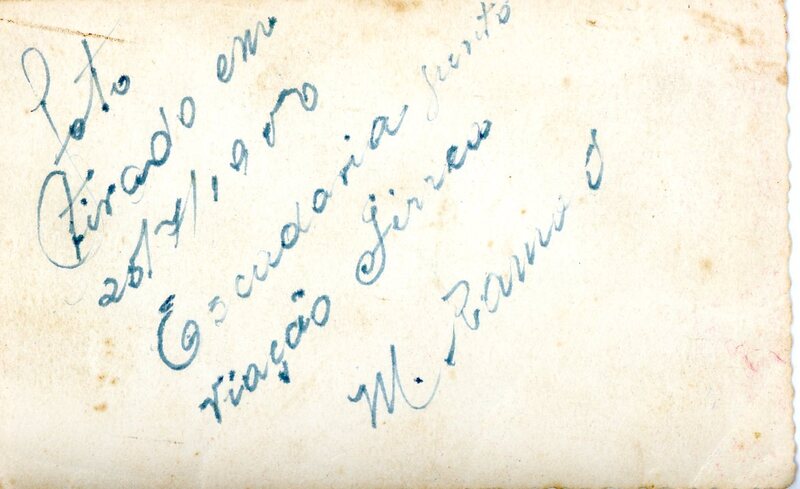 Foto
Tirado em
25/7/1950
Escadaria junto
viação Férrea
M. Ramos